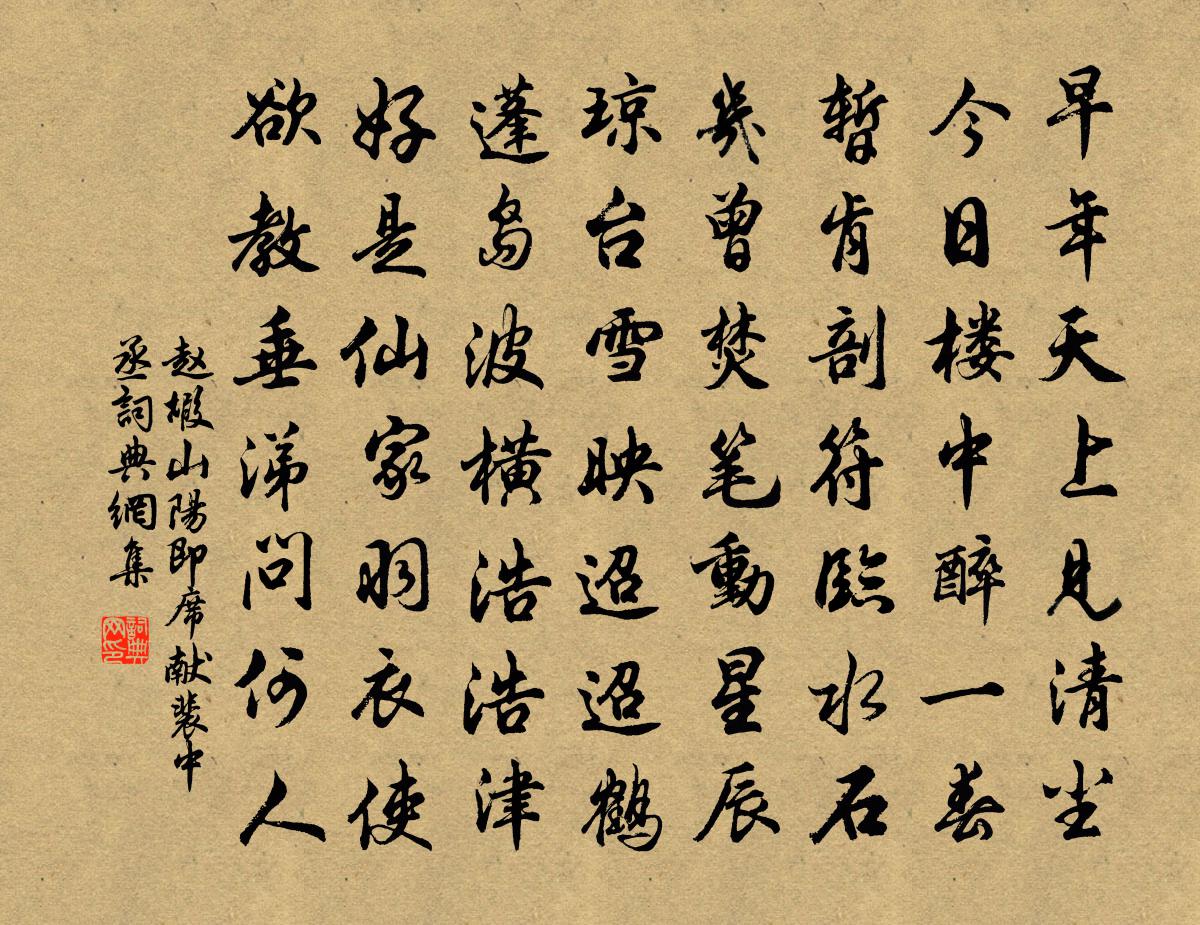 早年天上见清尘
今日楼中醉一春
暂肯剖符临水石
幾曾焚笔動星辰
琼台雪映迢迢鹤
蓬岛波横浩浩津
好是仙家羽衣使
欲教垂涕问何人
赵嘏山陽即席献裴中
丞詞典網集
詞典网印